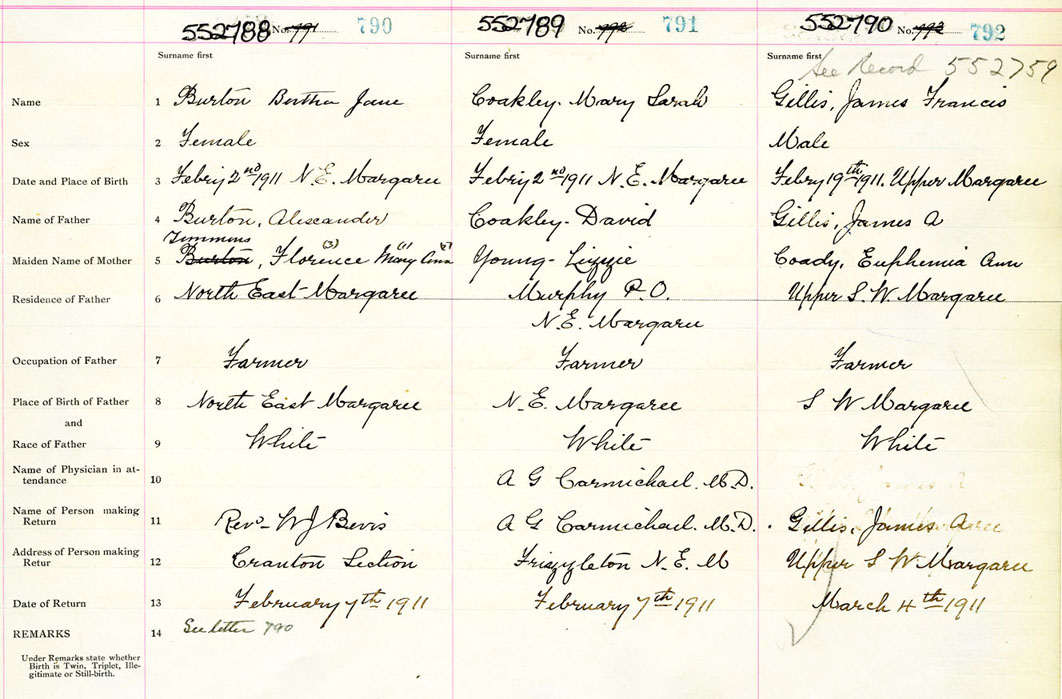 552788 No. 791 790 552789 No. 792 791 552790 No. 793 792
Surname first Surname first Surname first See Record 552759
Name 1 Burton Bertha Jane Coakley. Mary Sarah Gillis, James Francis
Sex 2 Female Female Male
Date and Place of Birth 3 Febry 2nd 1911 N.E. Margaree Febry 2nd 1911 N.E. Margaree Febry 19th 1911. Upper Margaree
Name of Father 4 Burton, Alexander Coakley. David Gillis, James A
Timmins (3) (1) (2)
Maiden Name of Mother 5 Burton, Florence Mary Ann Young - Lizzie Coady, Euphemia Ann
Residence of Father 6 North East Margaree Murphy P.O. Upper S. W Margaree
N.E. Margaree
Occupation of Father 7 Farmer Farmer Farmer
Place of Birth of Father 8 North East Margaree N. E. Margaree S W Margaree
and
Race of Father 9 White White White
Name of Physician in at-
tendance 10 A G Carmichael. M.D.
Name of Person making
Return 11 Rev. W J Bevis A G Carmichael. M.D. Gillis, James A
Address of Person making
Retur 12 Cranton Section Frizzleton N.E. M Upper S W Margaree
Date of Return 13 February 7th 1911 February 7th 1911 March 4th 1911
REMARKS 14 See letter 790
Under Remarks state whether
Birth is Twin, Triplet, Ille-
gitimate or Still-birth.